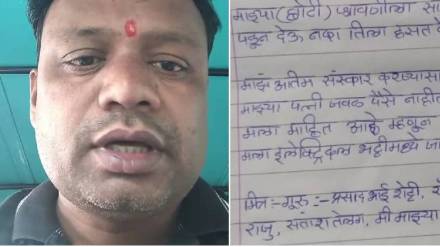 माझ्या (छोटी) श्रावणीला सा
पडून देऊ नका तिला हसत ठे
माझं अंतिम संस्कार करण्यास
माझ्या पत्नी जवळ पैसे नाहीत
मला माहित आहे म्हणून
मला इलेक्ट्रिकल भट्टीमध्ये जा
मित्र:-गुरु:- प्रसाद भाई शेट्टी,
राजु, संतारा तेलंग, मी माझ्या